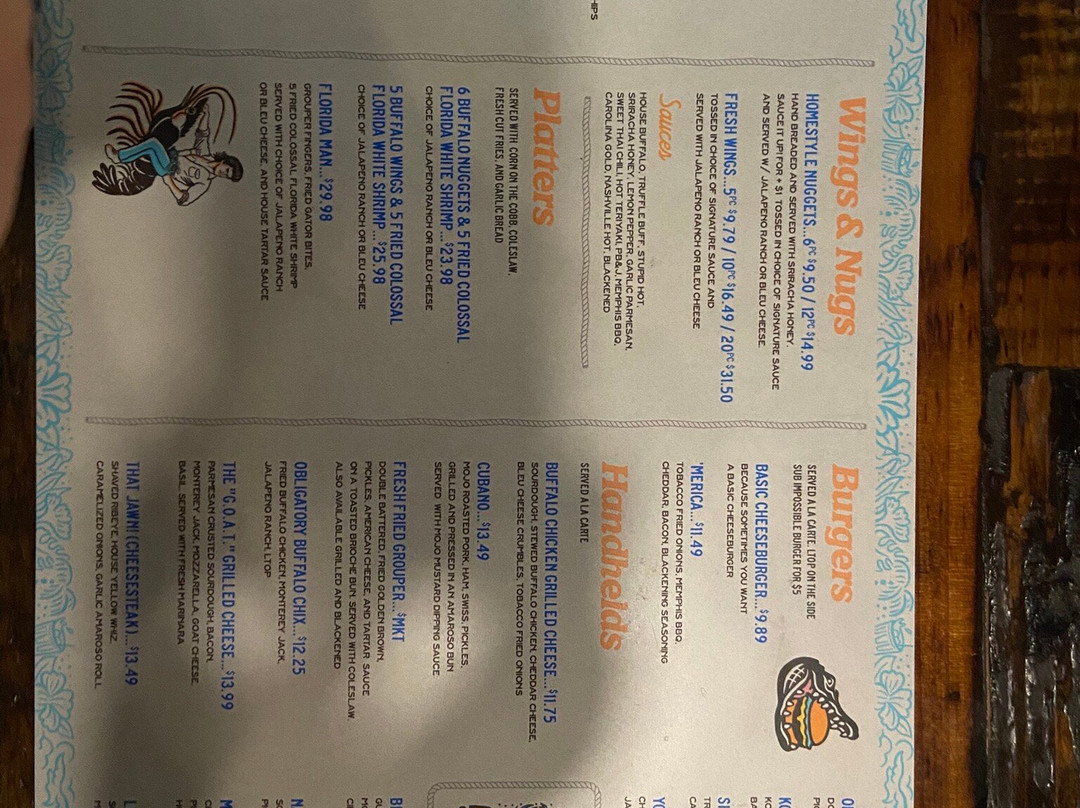 HIPS
Wings & Nugs
HOMESTYLE NUGGETS... 6PC $9.50 / 12PC $14.99
HAND BREADED AND SERVED WITH SRIRACHA HONEY.
SAUCE IT UP! FOR + $1 TOSSED IN CHOICE OF SIGNATURE SAUCE
AND SERVED W/ JALAPENO RANCH OR BLEU CHEESE.
FRESH WINGS ...5PC $9.79 / 10PC $16.49 / 20PC $31.50
TOSSED IN CHOICE OF SIGNATURE SAUCE AND
SERVED WITH JALAPENO RANCH OR BLEU CHEESE
Sauces
HOUSE BUFFALO, TRUFFLE BUFF, STUPID HOT,
SRIRACHA HONEY, LEMON PEPPER, GARLIC PARMESAN,
SWEET THAI CHILI, HOT TERIYAKI, PB&J, MEMPHIS BBQ,
CAROLINA GOLD, NASHVILLE HOT, BLACKENED
Platters
SERVED WITH CORN ON THE COBB, COLESLAW,
FRESH CUT FRIES, AND GARLIC BREAD
6 BUFFALO NUGGETS & 5 FRIED COLOSSAL
FLORIDA WHITE SHRIMP ... $23.98
CHOICE OF JALAPENO RANCH OR BLEU CHEESE
5 BUFFALO WINGS & 5 FRIED COLOSSAL
FLORIDA WHITE SHRIMP ... $25.98
CHOICE OF JALAPENO RANCH OR BLEU CHEESE
FLORIDA MAN... $29.98
GROUPER FINGERS, FRIED GATOR BITES,
5 FRIED COLOSSAL FLORIDA WHITE SHRIMP
SERVED WITH CHOICE OF JALAPENO RANCH
OR BLEU CHEESE, AND HOUSE TARTAR SAUCE
Burgers
SERVED A LA CARTE. LTOP ON THE SIDE
SUB IMPOSSIBLE BURGER FOR $5
BASIC CHEESEBURGER... $9.89
BECAUSE SOMETIMES YOU WANT
A BASIC CHEESEBURGER
'MERICA... $11.49
TOBACCO FRIED ONIONS, MEMPHIS BBQ,
CHEDDAR, BACON, BLACKENING SEASONING
Handhelds
SERVED A LA CARTE
BUFFALO CHICKEN GRILLED CHEESE... $11.75
SOURDOUGH, STEWED BUFFALO CHICKEN, CHEDDAR CHEESE,
BLEU CHEESE CRUMBLES, TOBACCO FRIED ONIONS
CUBANO... $13.49
MOJO ROASTED PORK, HAM, SWISS, PICKLES,
GRILLED AND PRESSED IN AN AMAROSO BUN
SERVED WITH MOJO MUSTARD DIPPING SAUCE
FRESH FRIED GROUPER... $MKT
DOUBLE BATTERED, FRIED GOLDEN BROWN,
PICKLES, AMERICAN CHEESE, AND TARTAR SAUCE
ON A TOASTED BRIOCHE BUN. SERVED WITH COLESLAW.
ALSO AVAILABLE GRILLED AND BLACKENED
OBLIGATORY BUFFALO CHIX...$12.25
FRIED BUFFALO CHICKEN, MONTEREY JACK,
JALAPENO RANCH, LTOP
THE "G.O.A.T." GRILLED CHEESE... $13.99
PARMESAN CRUSTED SOURDOUGH, BACON,
MONTEREY JACK, MOZZARELLA, GOAT CHEESE,
BASIL. SERVED WITH FRESH MARINARA
THAT JAWN! (CHEESESTEAK)...$13.49
SHAVED RIBEYE, HOUSE YELLOW WHIZ,
CARAMELIZED ONIONS, GARLIC AMAROSO ROLL